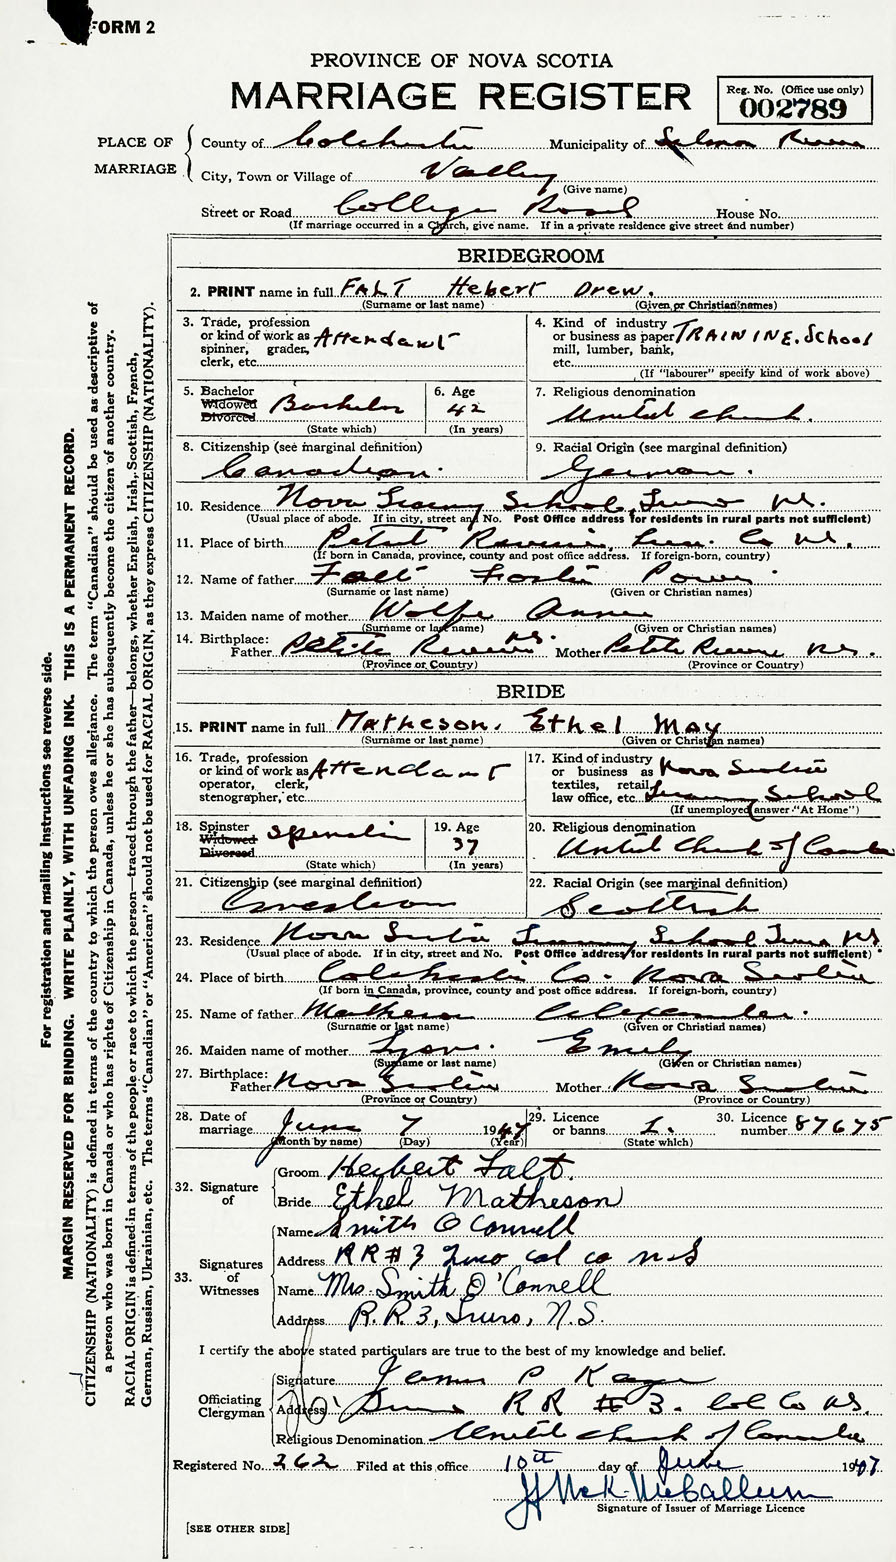 FORM 2
PROVINCE OF NOVA SCOTIA
MARRIAGE REGISTER
Reg. No. (Office use only)
002789
PLACE OF MARRIAGE
County of Colchester Municipality of Salmon River
City, Town or Village of Valley
(Give name)
Street or Road College Road House No.
(If marriage occurred in a Church, give name. If in a private residence give street and number)
BRIDEGROOM
2. PRINT name in full FALT Hebert Drew.
(Surname or last name) (Given or Christian names)
3. Trade, profession or kind of work as spinner, grader, clerk, etc. Attendant
4. Kind of industry or business as paper mill, lumber, bank, etc. TRAINING. School
(If "labourer" specify kind of work above)
5. Bachelor Widowed Divorced Bachelor
(State which)
6. Age 42
(In years)
7. Religious denomination United Church.
8. Citizenship (see marginal definition) Canadian.
9. Racial Origin (see marginal definition) German.
10. Residence Nova School, Truro N.S.
(Usual place of abode. If in city, street and No. Post Office address for residents in rural parts not sufficient)
11. Place of birth Petite Riviere, Lun. Co N.S.
(If born in Canada, province, county and post office address. If foreign-born, country)
12. Name of father Falt Foster
(Surname or last name) (Given or Christian names)
13. Maiden name of mother Wolfe Annie
(Surname or last name) (Given or Christian names)
14. Birthplace: Father Petite Riviere N.S. Mother Petite Riviere N.S.
(Province or Country) (Province or Country)
BRIDE
15. PRINT name in full Matheson, Ethel May
(Surname or last name) (Given or Christian names)
16. Trade, profession or kind of work as operator, clerk, stenographer, etc. Attendant
17. Kind of industry or business as textiles, retail, law office, etc. Nova Scotia Training School
(If unemployed answer "At Home")
18. Spinster Widowed Divorced Spinster
(State which)
19. Age 37
(In years)
20. Religious denomination United Church of Canada
21. Citizenship (see marginal definition) Canadian
22. Racial Origin (see marginal definition) Scottish
23. Residence Nova Scotia Training School Truro N.S.
(Usual place of abode. If in city, street and No. Post Office address for residents in rural parts not sufficient)
24. Place of birth Colchester Co. Nova Scotia
(If born in Canada, province, county and post office address. If foreign-born, country)
25. Name of father Matheson Alexander.
(Surname or last name) (Given or Christian names)
26. Maiden name of mother Lyons Emily
(Surname or last name) (Given or Christian names)
27. Birthplace: Father Nova Scotia Mother Nova Scotia
(Province or Country) (Province or Country)
28. Date of marriage June 7 1947
(Month by name) (Day) (Year)
29. Licence or banns L.
(State which)
30. Licence number 87675
32. Signature of
Groom Herbert Falt.
Bride Ethel Matheson
33. Signatures of Witnesses
Name Smith O Connell
Address RR#3 Truro col co N-S
Name Mrs. Smith O'Connell
Address R.R.3, Truro, N.S.
I certify the above stated particulars are true to the best of my knowledge and belief.
Officiating Clergyman
Signature James P
Address Truro RR #3. Col Co N.S.
Religious Denomination United Church of Canada
Registered No. 262 Filed at this office 10th day of June 1947
Signature of Issuer of Marriage Licence
[SEE OTHER SIDE]
For registration and mailing instructions see reverse side.
MARGIN RESERVED FOR BINDING. WRITE PLAINLY, WITH UNFADING INK. THIS IS A PERMANENT RECORD.
CITIZENSHIP (NATIONALITY) is defined in terms of the country to which the person owes allegiance. The term "Canadian" should be used as descriptive of
a person who was born in Canada or who has rights of Citizenship in Canada, unless he or she has subsequently become the citizen of another country.
RACIAL ORIGIN is defined in terms of the people or race to which the person—traced through the father—belongs, whether English, Irish, Scottish, French,
German, Russian, Ukrainian, etc. The terms "Canadian" or "American" should not be used for RACIAL ORIGIN, as they express CITIZENSHIP (NATIONALITY).